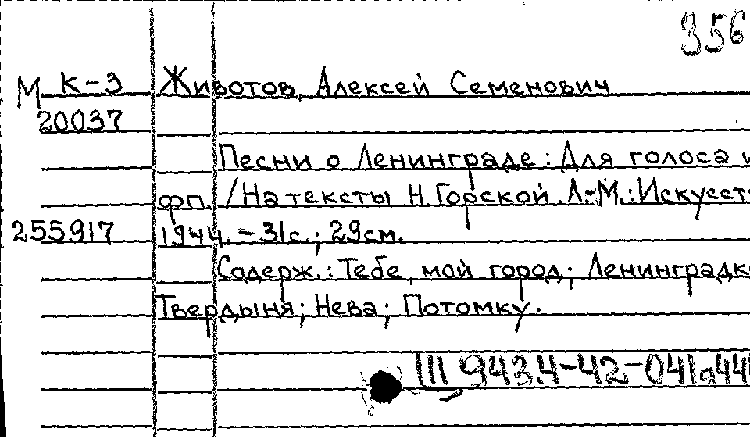 356
М К-3 Животов, Алексей Семенович
20037
Песни о Ленинграде: Для голоса и
фп. /На тексты Н. Горской. Л.-М.: Искусст
255917 1944. - 31с.; 29см.
Содерж.: Тебе, мой город; Ленинградк
Твердыня; Нева; Потомку.
III 943.4-42-041а44